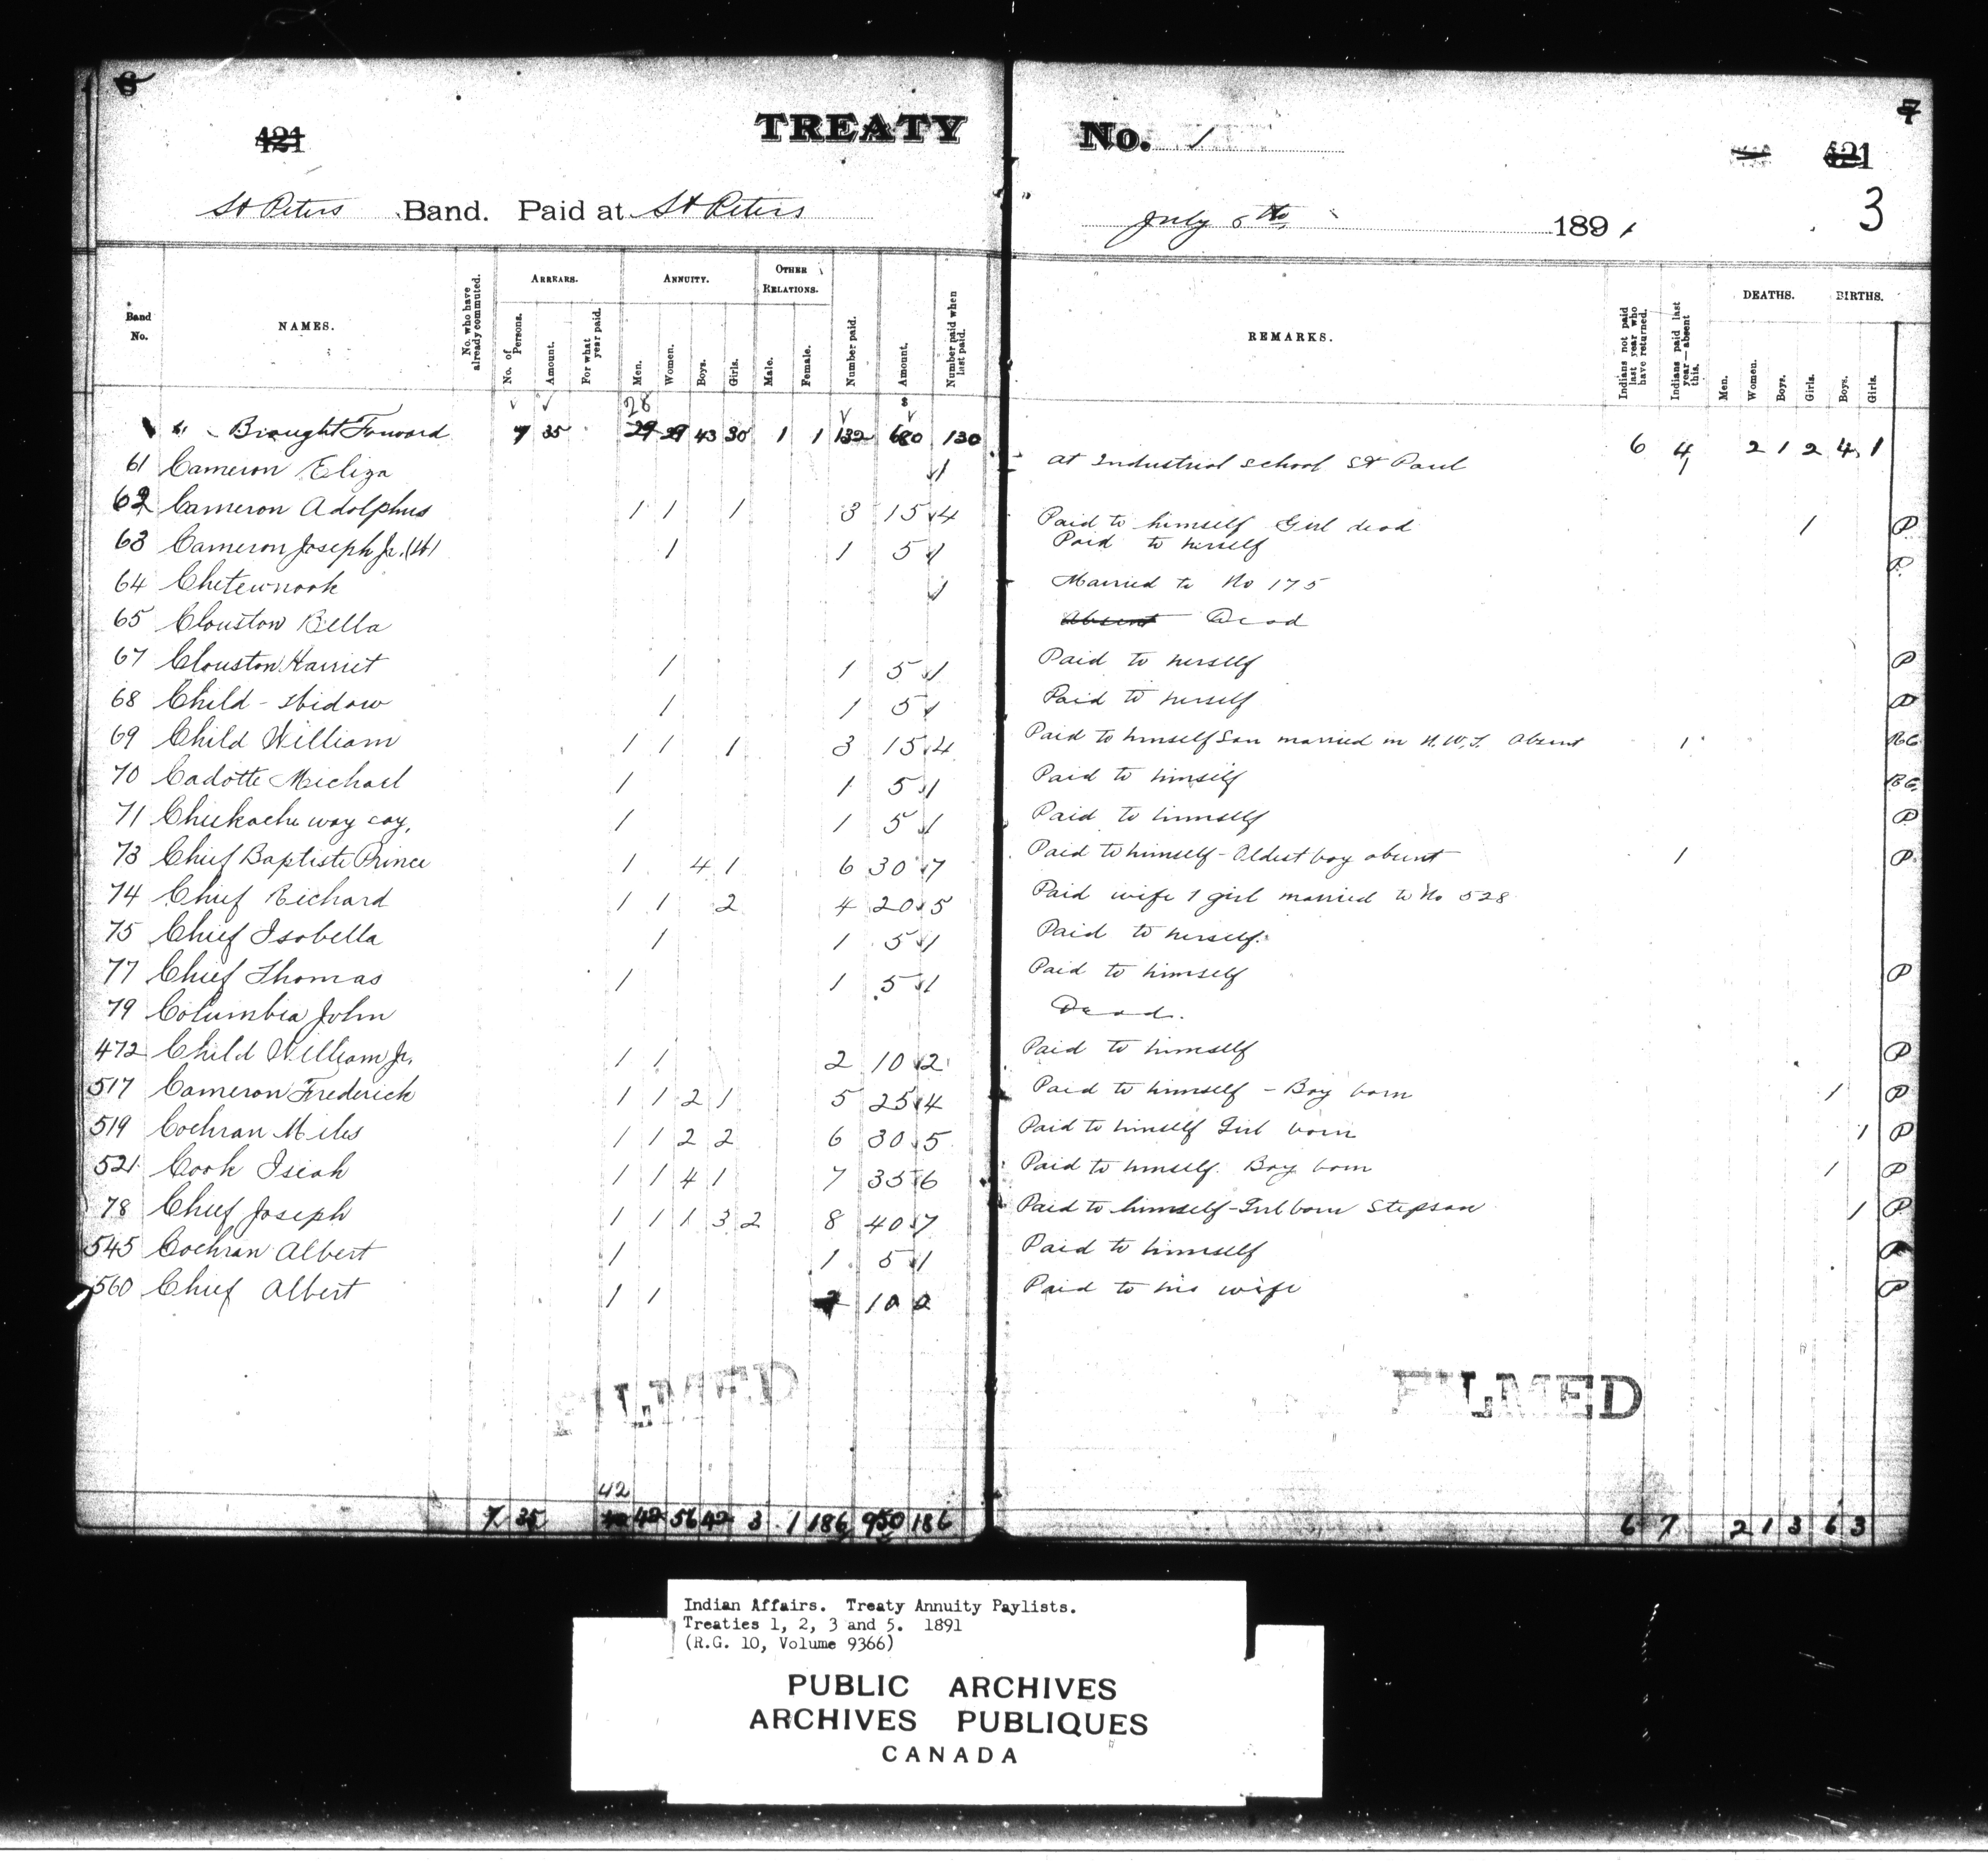 TREATY No. 1
421 421
3
St Peters Band. Paid at St Peters July 6th 1891
Band No. NAMES. No. who have already commuted. ARREARS. No. of Persons. Amount. For what year paid. ANNUITY. Men. Women. Boys. Girls. OTHER RELATIONS. Male. Female. Number paid. Amount. Number paid when last paid. REMARKS. Indians not paid last year who have returned. Indians paid last year—absent this. DEATHS. Men. Women. Boys. Girls. BIRTHS. Boys. Girls.
28
Brought Forward 7 35 29 29 43 30 1 1 132 680 130 6 4 2 1 2 4 1
61 Cameron Eliza 1 at Industrial school St Paul
62 Cameron Adolphus 1 1 1 3 15 4 Paid to himself Girl dead 1 P
63 Cameron Joseph Jr. 1 1 5 1 Paid to herself P
64 Chetewnook Married to No 175
65 Clouston Bella Absent Dead
67 Clouston Harriet 1 1 5 1 Paid to herself P
68 Child - Widow 1 1 5 1 Paid to herself P
69 Child William 1 1 1 3 15 4 Paid to himself Son married in N.W.T. Absent 1
70 Cadotte Michael 1 1 5 1 Paid to himself
71 1 1 5 1 Paid to himself P
73 Chief Baptiste Prince 1 4 1 6 30 7 Paid to himself - Oldest boy absent 1 P
74 Chief Richard 1 1 2 4 20 5 Paid wife 1 girl married to No 528
75 Chief Isobella 1 1 5 1 Paid to herself.
77 Chief Thomas 1 1 5 1 Paid to himself P
79 Columbia John Dead.
472 Child William Jr. 1 1 2 10 2 Paid to himself P
517 Cameron Frederick 1 1 2 1 5 25 4 Paid to himself - Boy born 1 P
519 Cochran Miles 1 1 2 2 6 30 5 Paid to himself Girl born 1 P
521 Cook Isiah 1 1 4 1 7 35 6 Paid to himself. Boy born 1 P
78 Chief Joseph 1 1 1 3 2 8 40 7 Paid to himself - Girl born Stepson 1 P
545 Cochran Albert 1 1 5 1 Paid to himself P
560 Chief Albert 1 1 2 10 2 Paid to his wife P
FILMED FILMED
42
7 35 42 56 42 3 1 186 950 186 6 7 2 1 3 6 3
Indian Affairs. Treaty Annuity Paylists.
Treaties 1, 2, 3 and 5. 1891
(R.G. 10, Volume 9366)
PUBLIC ARCHIVES
ARCHIVES PUBLIQUES
CANADA